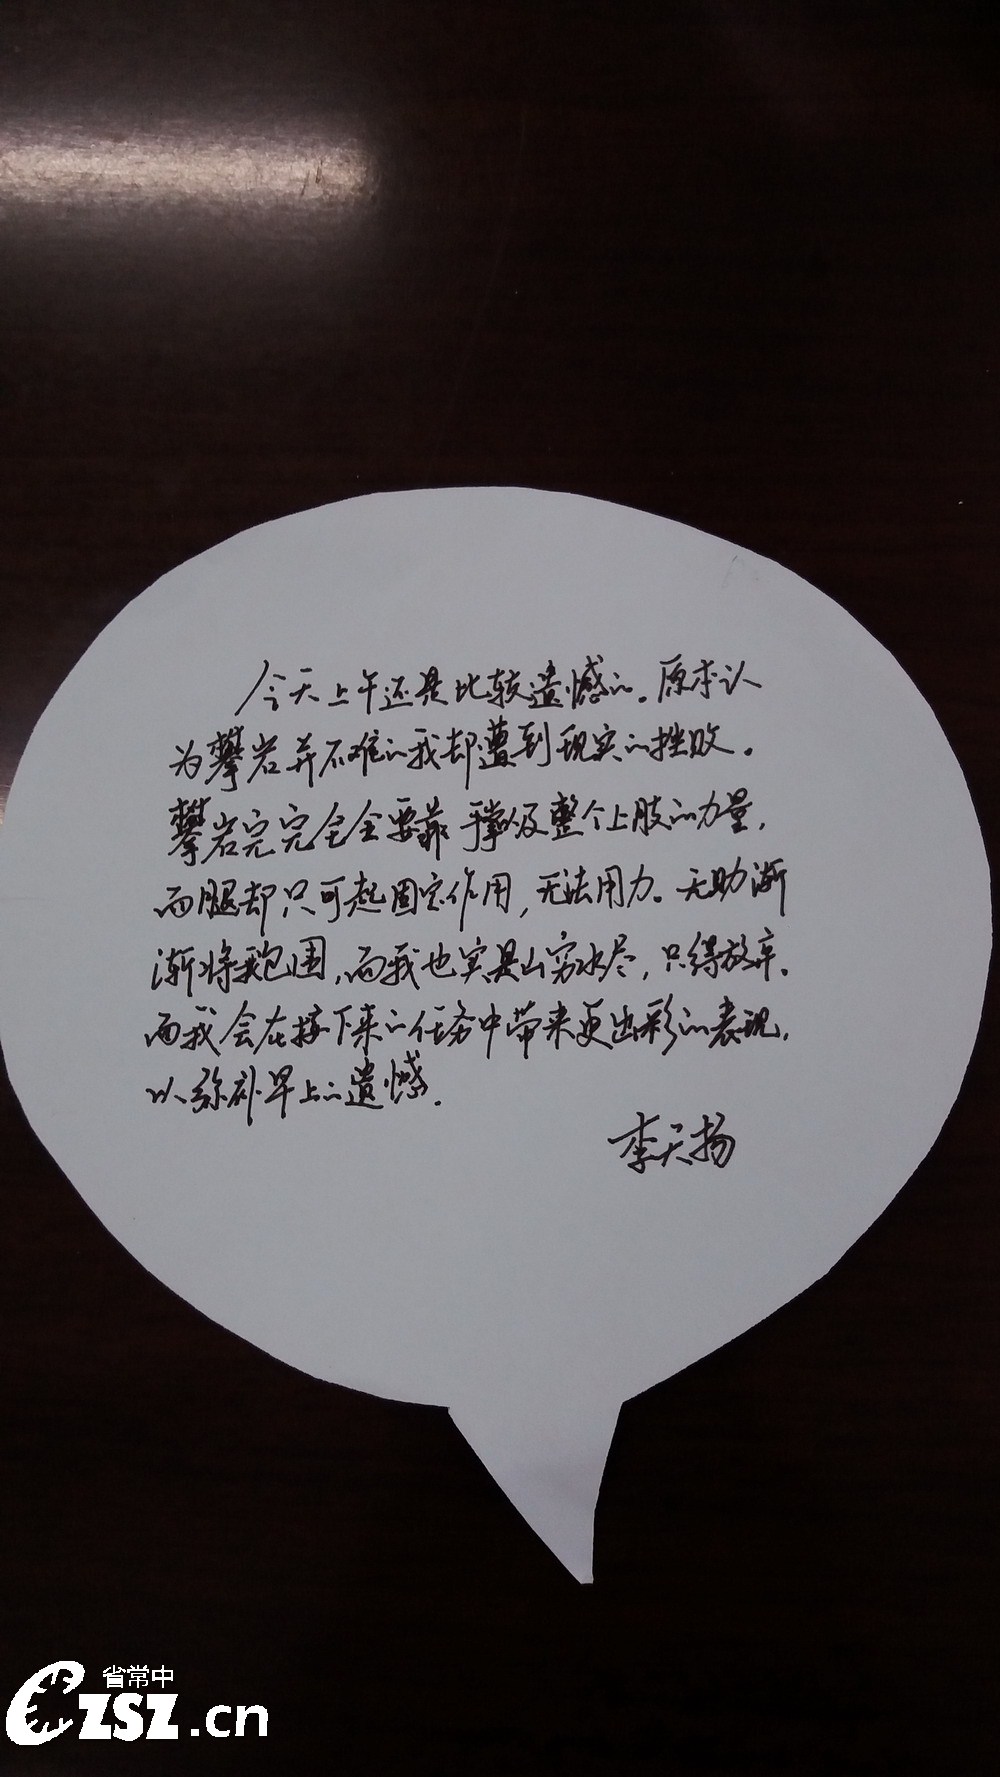 今天上午还是比较遗憾的。原本认
为攀岩并不难的我却遭到现实的挫败。
攀岩完完全全要靠手掌以及整个上肢的力量,
而腿却只可起固定作用,无法用力。无助渐
渐将我包围,而我也实是山穷水尽,只得放弃。
而我会在接下来的任务中带来更出彩的表现,
以弥补早上的遗憾.
李天扬
省常中
CZSZ.cn